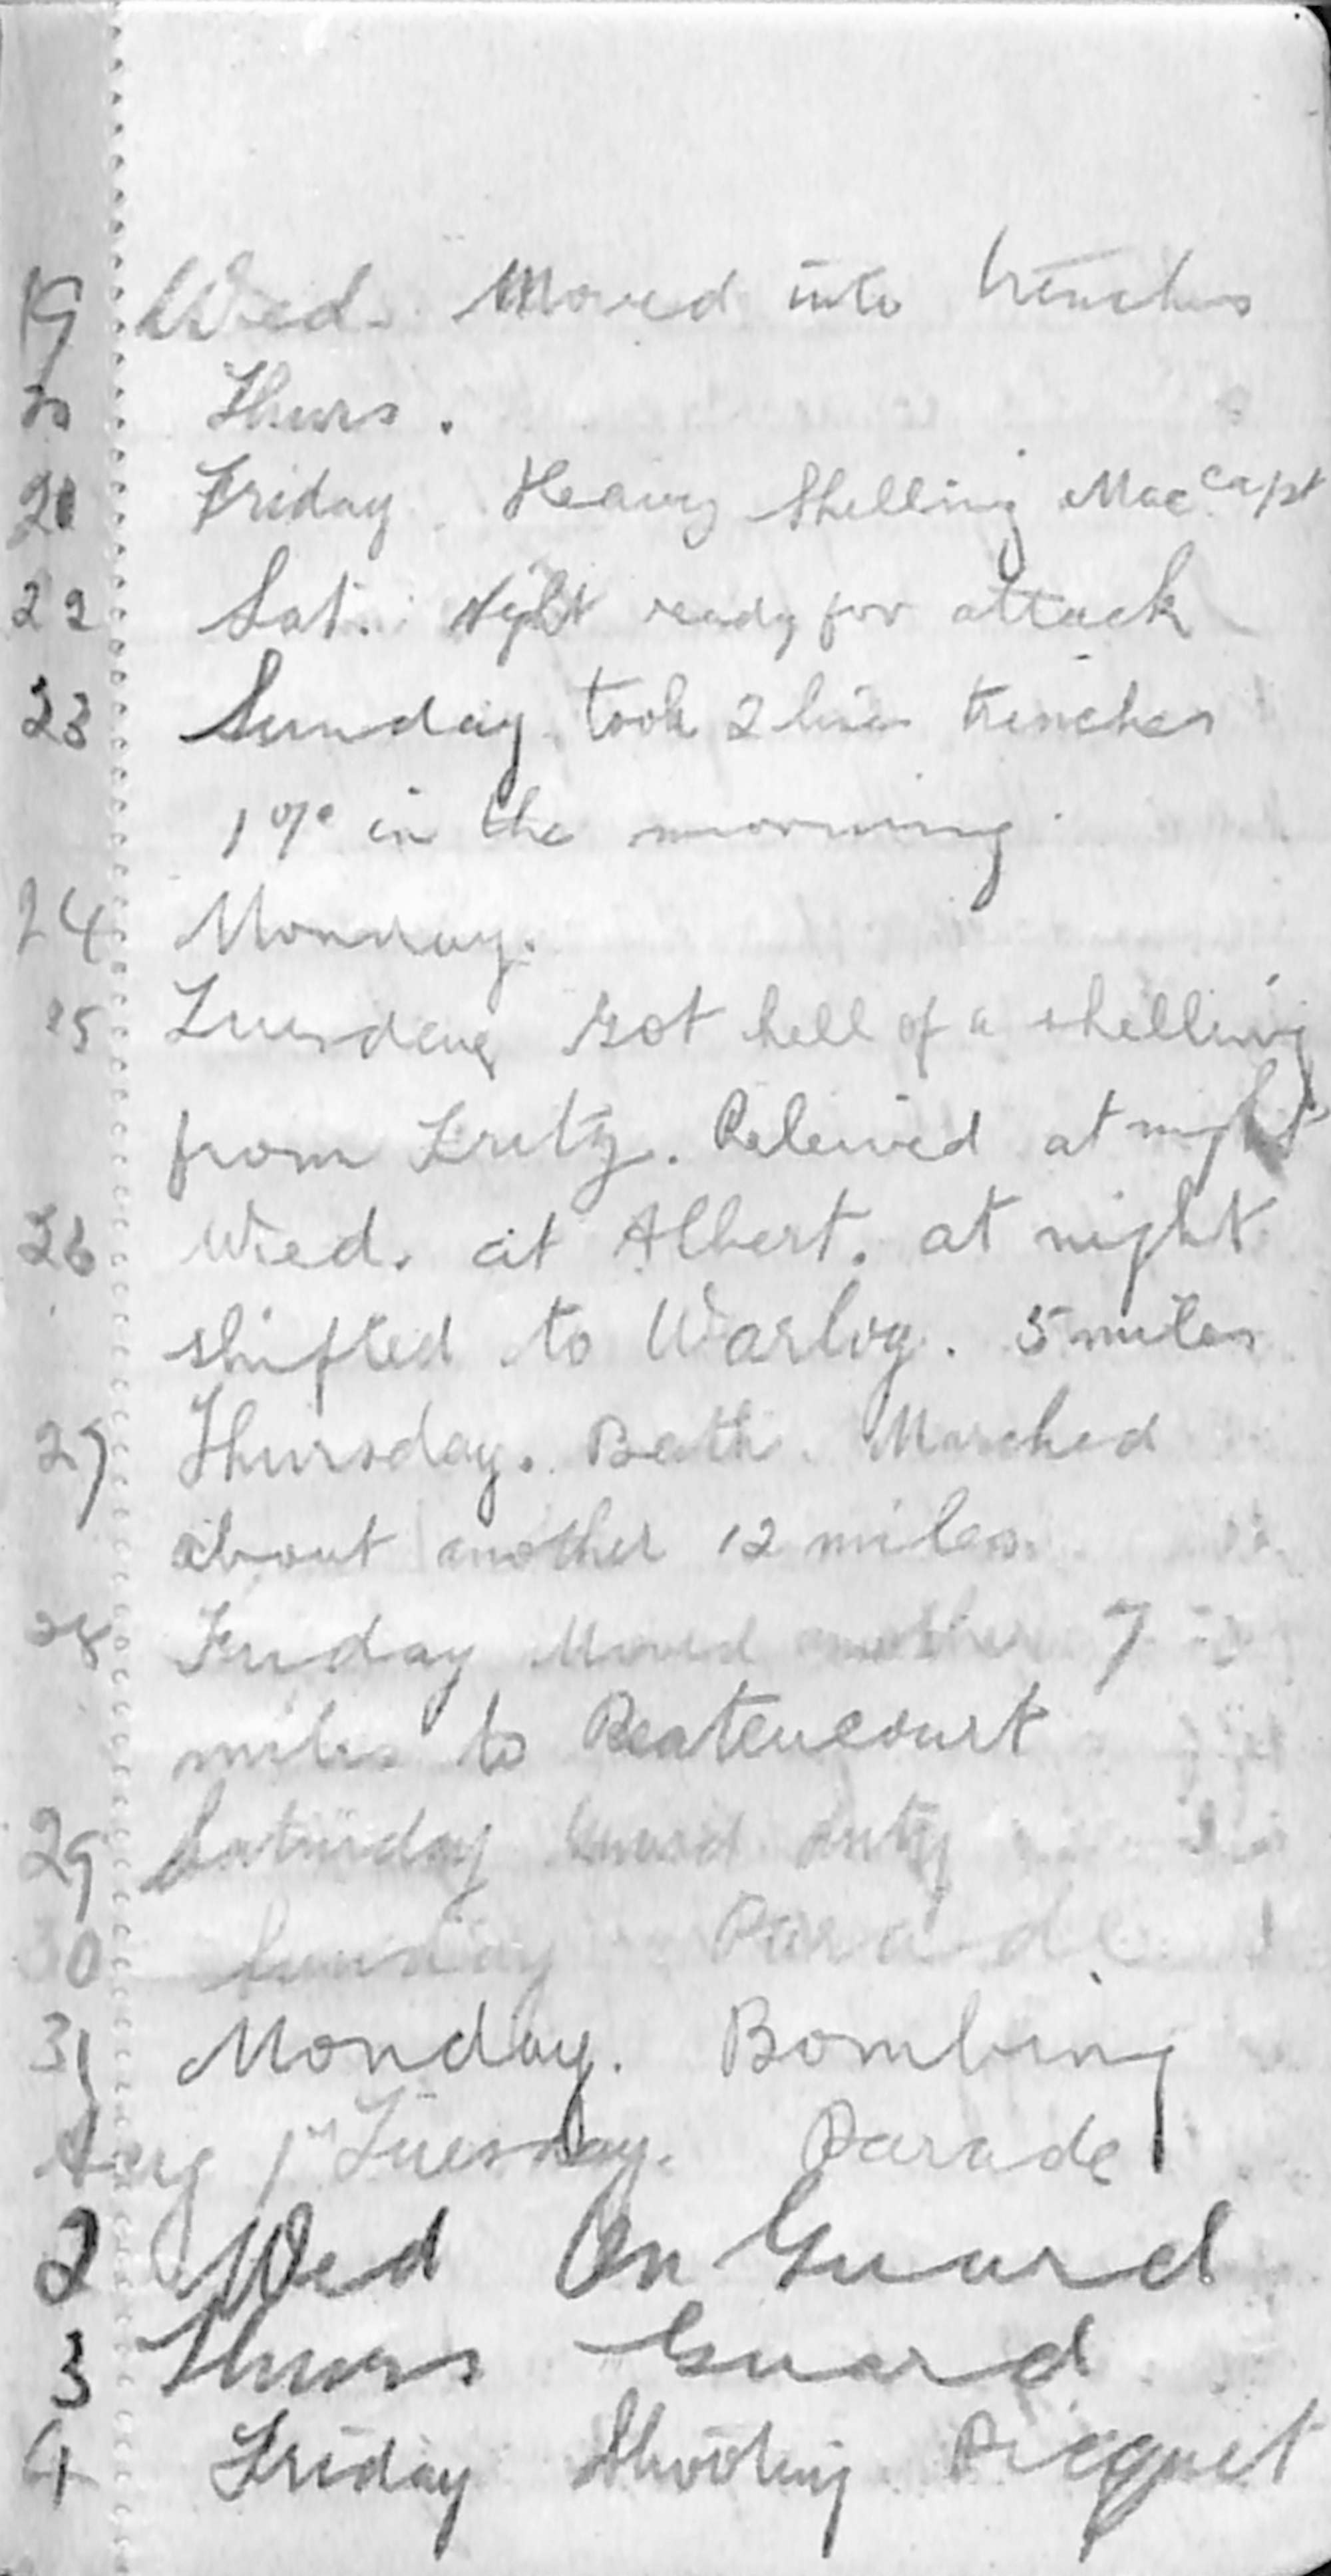 19 Wed. Moved into trenches
20 Thurs.
21 Friday. Heavy Shelling Mac. Capt
22 Sat. Night ready for attack
23 Sunday. took 2 line trenches
in the morning.
24 Monday.
25 Tuesday Got hell of a shelling
from Fritz. Releived at night
26 Wed. at Albert. at night
shifted to Warloy. 5 miles
27 Thursday. Bath. Marched
about another 12 miles.
28 Friday Moved another 7
miles to Beatencourt
29 Saturday Guard duty
30 Sunday Parade
31 Monday. Bombing
Aug 1st Tuesday. Parade
2 Wed On Guard
3 Thurs Guard
4 Friday Shooting Picquet